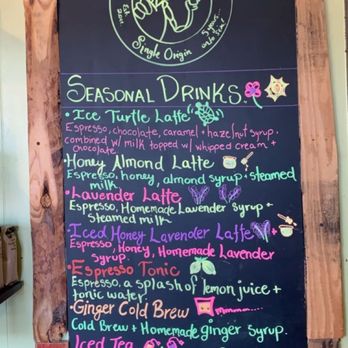 Est.
5 years...
Single Origin
SEASONAL DRINKS.
• Ice Turtle Latte
Espresso, chocolate, caramel + hazelnut syrup.
combined w/ milk topped w/ whipped cream +
chocolate
• Honey Almond Latte
Espresso, honey, almond syrup + steamed
milk
• Lavender Latte
Espresso, Homemade Lavender Syrup +
Steamed milk
• Iced Honey Lavender Latte
Espresso, Honey, Homemade Lavender
Syrup.
• Espresso Tonic
Espresso, a splash of lemon juice +
tonic water.
• Ginger Cold Brew
Cold Brew + Homemade ginger syrup.
Iced Tea